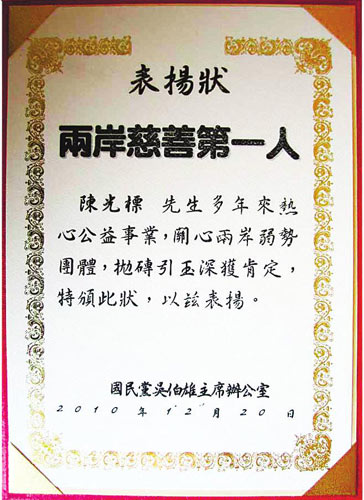 表揚狀
兩岸慈善第一人
陳光標 先生多年來熱
心公益事業，開心兩岸弱勢
團體，拋磚引玉深獲肯定，
特頒此狀，以茲表揚。
國民黨吳伯雄主席辦公室
2010年12月20日